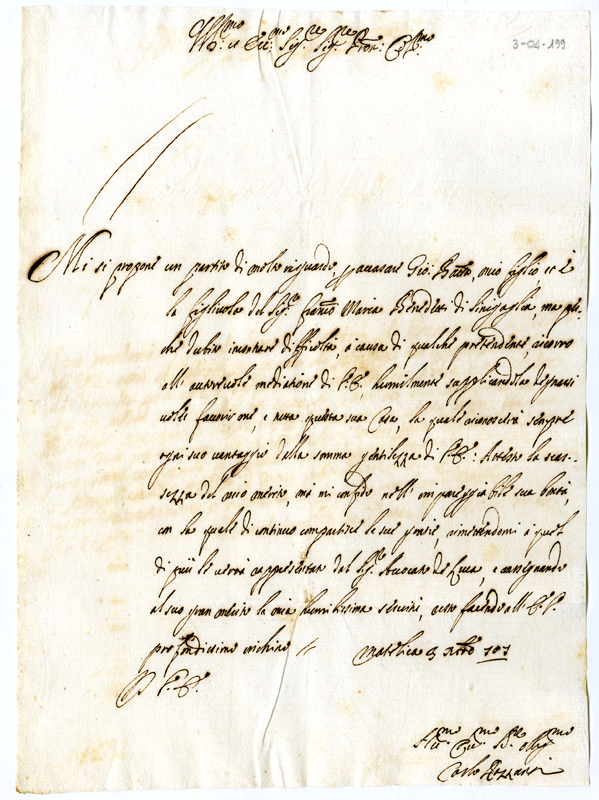 Ill.mo et Ecc.mo Sig.re Sig.re Pron. Col.mo
3-04-199
Mi si propone un partito di molto riguardo, p accasare Gio: Batta, mio figlio et è
la figliuola del Sig.re Franc.o Maria Benedetti di Sinigaglia, ma per-
che dubito incontrare difficoltà, a causa di qualche pretendente, ricorro
all' autorevole mediatione di V.E. humilmente supplicandola degnarsi
voler favorir me, e tutta questa sua Casa, la quale riconoscerà sempre
ogni suo vantaggio dalla somma gentilezza di V.E.: Arresto la scar-
sezza del mio merito, mà mi confido nell' impareggiabile sua bontà,
con la quale di continuo compartisce le sue gratie, rimettendomi a quel
di più le verrà rappresentato dal Sig.re Avvocato de Luca, e consignando
al suo gran merito la mia humilissima servitù, resto facendo all' E.V.
profondissimo inchino // Matelica 3 Alle 707
D V.E.
Hu.mo De.mo S.re Obl.mo
Carlo